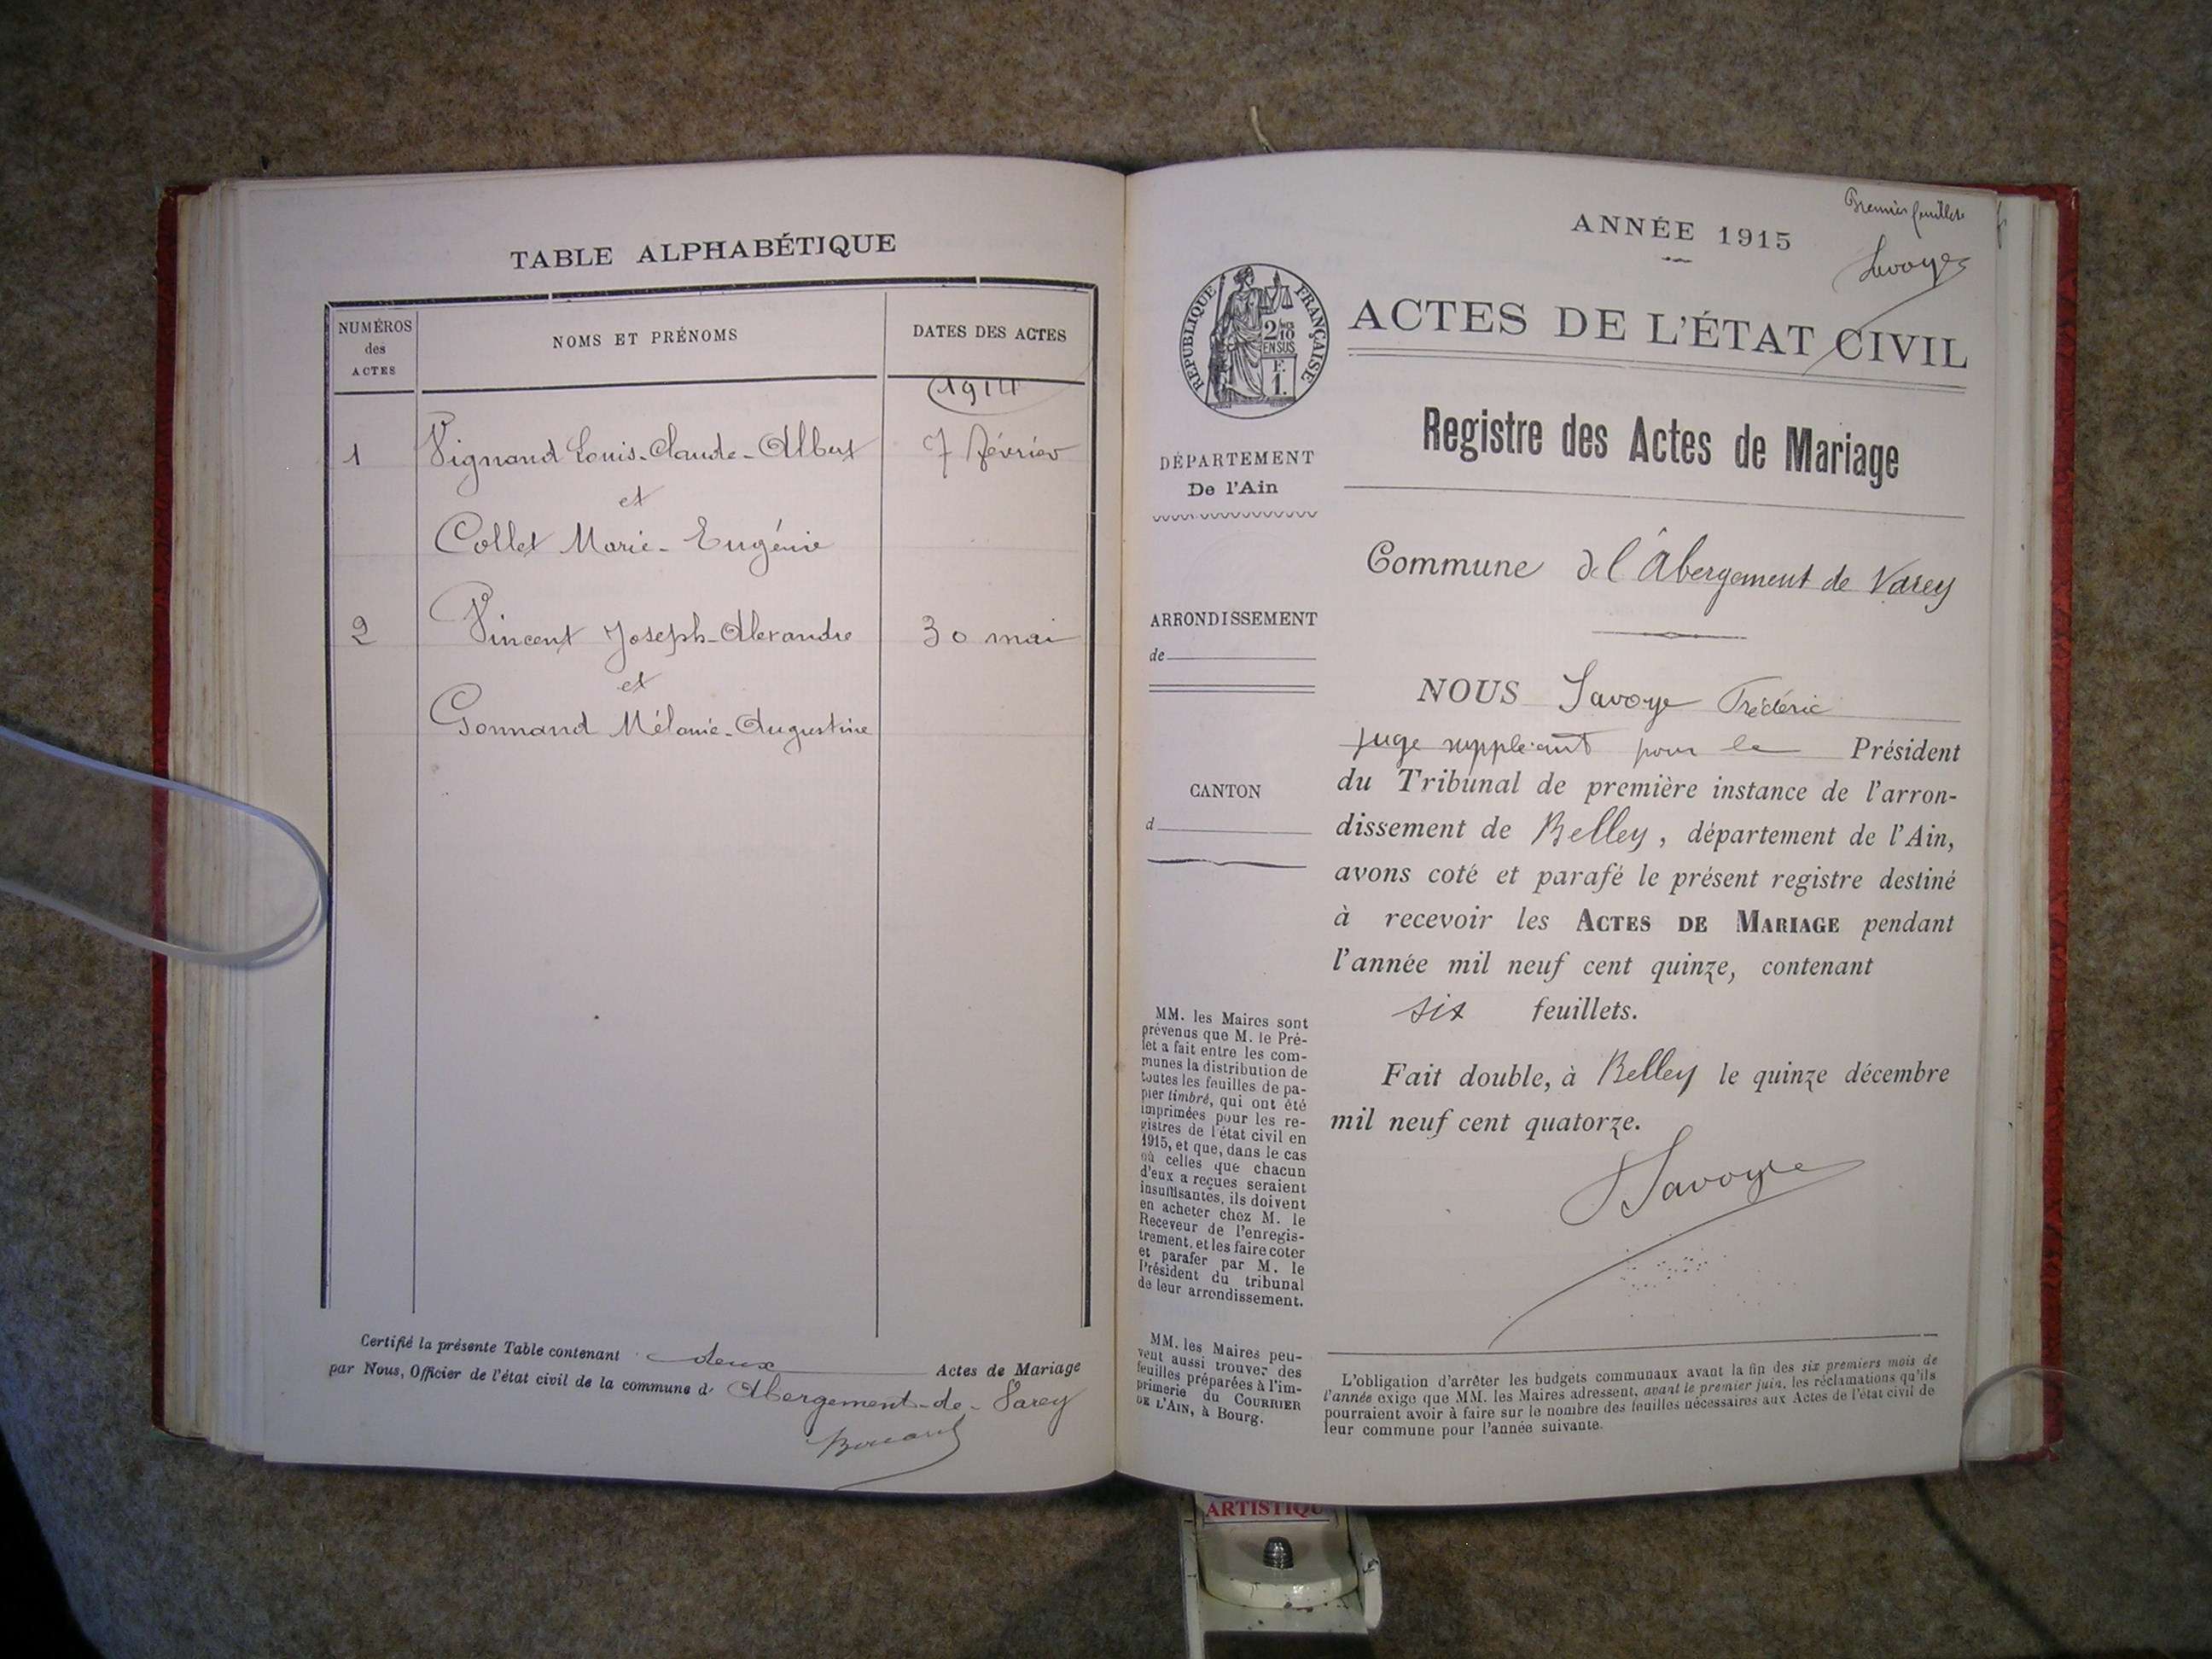 TABLE ALPHABÉTIQUE
NUMÉROS
des
ACTES
NOMS ET PRÉNOMS
DATES DES ACTES
1914
1 Vignand Louis-Claude-Albert 7 février
et
Collet Marie-Eugénie
2 Vincent Joseph-Alexandre 30 mai
et
Gonnand Mélanie-Augustine
Certifié la présente Table contenant deux Actes de Mariage
par Nous, Officier de l'état civil de la commune d' Abergement-de-Varey
Premier feuillet
Savoye
ANNÉE 1915
ACTES DE L'ÉTAT CIVIL
RÉPUBLIQUE FRANÇAISE
2/10
EN SUS
F.
1.
Registre des Actes de Mariage
DÉPARTEMENT
De l'Ain
Commune de l'Abergement de Varey
ARRONDISSEMENT
de
CANTON
d
NOUS Savoye Frédéric
juge suppléant pour le Président
du Tribunal de première instance de l'arron-
dissement de Belley, département de l'Ain,
avons coté et parafé le présent registre destiné
à recevoir les ACTES DE MARIAGE pendant
l'année mil neuf cent quinze, contenant
six feuillets.
Fait double, à Belley le quinze décembre
mil neuf cent quatorze.
Savoye
MM. les Maires sont
prévenus que M. le Pré-
fet a fait entre les com-
munes la distribution de
toutes les feuilles de pa-
pier timbré, qui ont été
imprimées pour les re-
gistres de l'état civil en
1915, et que, dans le cas
où celles que chacun
d'eux a reçues seraient
insuffisantes, ils doivent
en acheter chez M. le
Receveur de l'enregis-
trement, et les faire coter
et parafer par M. le
Président du tribunal
de leur arrondissement.
MM. les Maires peu-
vent aussi trouver des
feuilles préparées à l'im-
primerie du COURRIER
DE L'AIN, à Bourg.
L'obligation d'arrêter les budgets communaux avant la fin des six premiers mois de
l'année exige que MM. les Maires adressent, avant le premier juin, les réclamations qu'ils
pourraient avoir à faire sur le nombre des feuilles nécessaires aux Actes de l'état civil de
leur commune pour l'année suivante.
ARTISTIQU